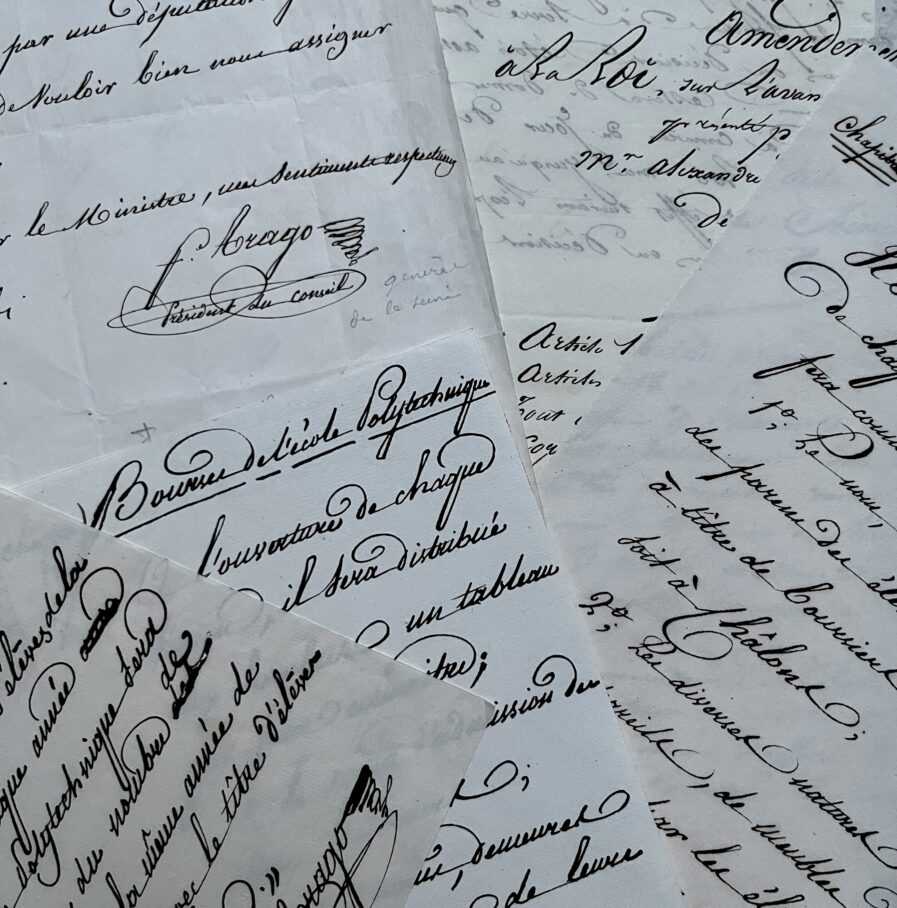 par une députation
de Vouloir bien nous assigner
le Ministre, nos Sentiments respectueux
f. Arago
Président du conseil
général
de la Seine
Amendem
à la Loi, sur l'avan
présenté p
Mr. alexandre
De
Article 1
Article
Tout
Chapitre
De chaq
fera conn
1o; Le nom,
des parens des élè
à titre de boursier
soit à Châlons;
2o; Les diverses natures
de meubles
par les él
Bourses de l'école Polytechnique
l'ouverture de chaque
il sera distribué
un tableau
ission des
demeures
de leurs
élèves de la
que année
Polytechnique sera
du nombre de
la même année de
avec le titre d'élèves
Arago